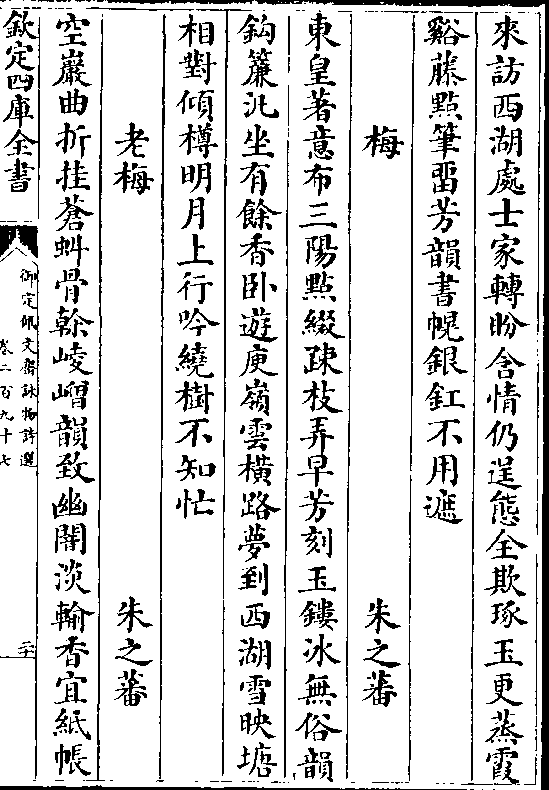 來訪西湖處士家轉盼含情仍逞態全欺琢玉更蒸霞
谿藤點筆留芳韻書幌銀釭不用遮
梅　朱之蕃
東皇著意布三陽點綴疎枝弄早芳刻玉鏤冰無俗韻
鈎簾汎坐有餘香卧遊庾嶺雲橫路夢到西湖雪映塘
相對傾樽明月上行吟繞樹不知忙
老梅　朱之蕃
空巖曲折挂蒼虯骨榦崚嶒韻致幽闇淡輸香宜紙帳
欽定四庫全書
御定佩文齋詠物詩選
卷二百九十七
二十